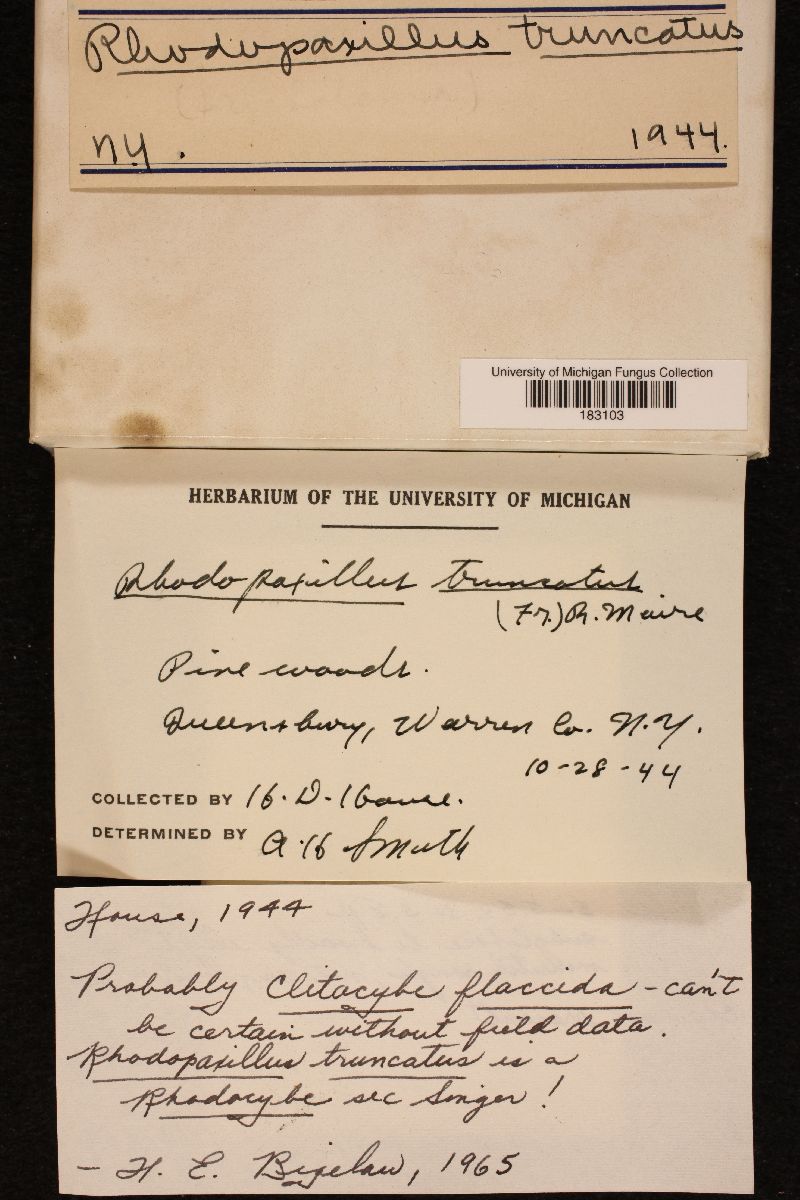 Rhodopaxillus truncatus
NY. 1944.
University of Michigan Fungus Collection
183103
HERBARIUM OF THE UNIVERSITY OF MICHIGAN
Rhodopaxillus truncatus
(Fr.) R. Maire
Pine woods.
Queensbury, Warren Co. N.Y.
10-28-44
COLLECTED BY H. D. House.
DETERMINED BY A. H. Smith
House, 1944
Probably Clitocybe flaccida - can't
be certain without field data.
Rhodopaxillus truncatus is a
Rhodocybe sec Singer!
- H. E. Bigelow, 1965